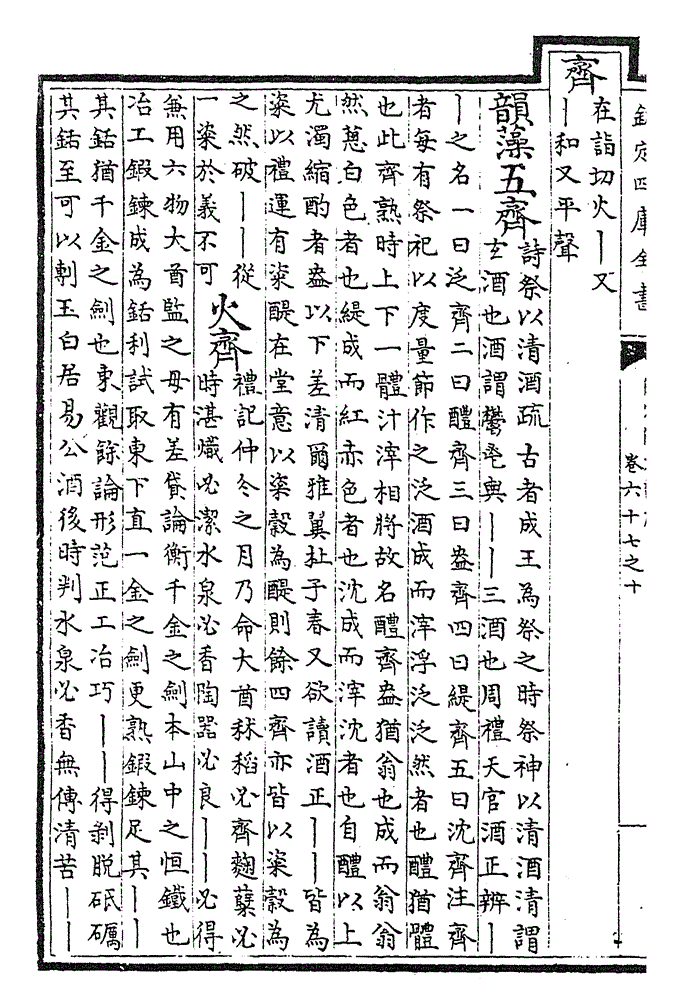 欽定四庫全書
卷六十七之十
齊
在詣切火｜又
｜和又平聲
韻藻五齊
詩祭以清酒疏 古者成王為祭之時祭神以清酒清謂
玄酒也酒謂鬱鬯與｜｜三酒也周禮天官酒正辨｜
｜之名一曰泛齊二曰醴齊三曰盎齊四曰緹齊五曰沈齊注齊
者每有祭祀以度量節作之泛酒成而滓浮泛泛然者也醴猶體
也此齊熟時上下一體汁滓相將故名醴齊盎猶翁也成而翁翁
然蔥白色者也緹成而紅赤色者也沈成而滓沈者也自醴以上
尤濁縮酌者盎以下差清爾雅翼杜子春又欲讀酒正｜｜皆為
粢以禮運有粢醍在堂意以粢穀為醍則餘四齊亦皆以粢穀為
之然破｜｜從
一粢於義不可
火齊
禮記仲冬之月乃命大酋秫稻必齊麴糵必
時湛熾必潔水泉必香陶器必良｜｜必得
兼用六物大酋監之毋有差貸論衡千金之劍本山中之恒鐵也
冶工鍛鍊成為銛利試取東下直一金之劍更熟鍛鍊足其｜｜
其銛猶千金之劍也東觀餘論形范正工冶巧｜｜得剝脫砥礪
其銛至可以剸玉白居易公酒後時判水泉必香無傳清苦｜｜